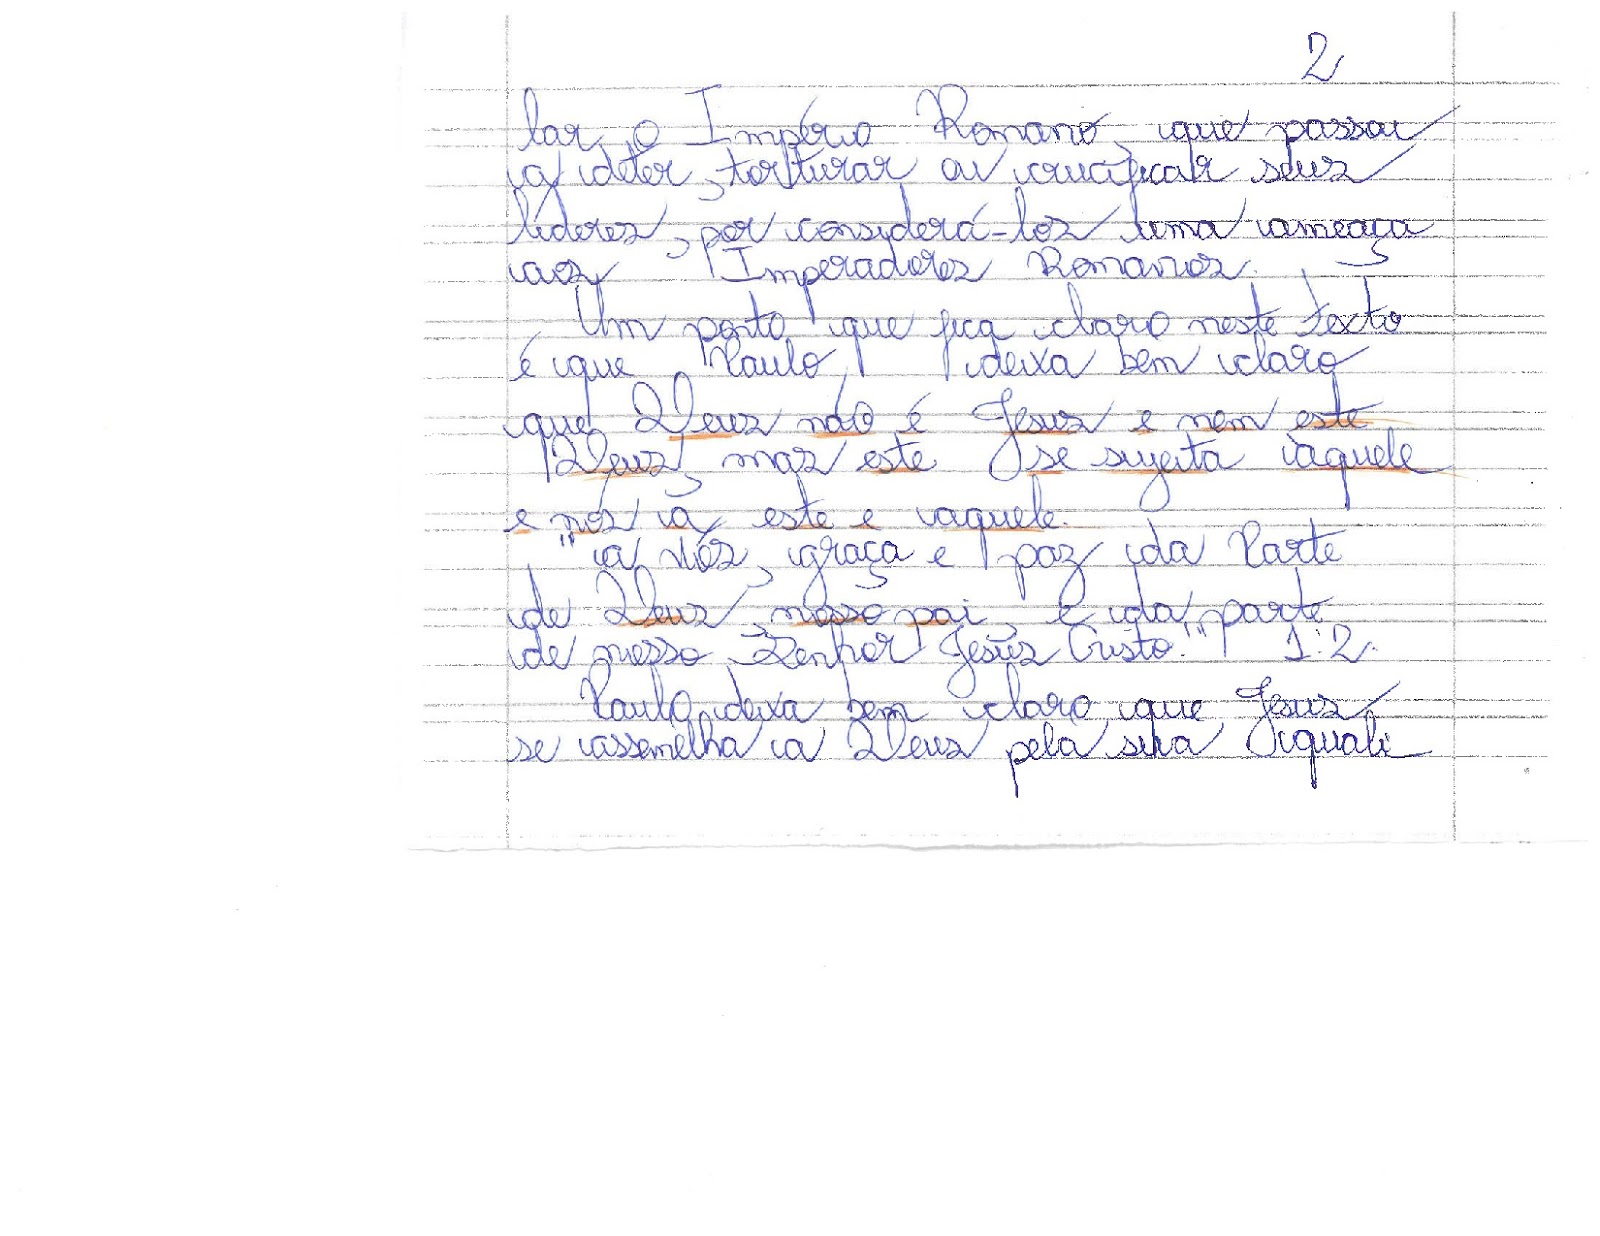 2
lar o Império Romano, que passou
a deter, torturar ou crucificar seus
líderes, por considerá-los uma ameaça
aos Imperadores Romanos.
Um ponto que fica claro neste texto
é que Paulo, deixa bem claro
que Deus não é Jesus e nem este
Deus, mas este se sujeita àquele
e nós à este e àquele.
"a vós, graça e paz da Parte
de Deus, nosso pai, e da parte
de nosso Senhor Jesus Cristo." 1:2.
Paulo deixa bem claro que Jesus
se assemelha a Deus pela sua iguali